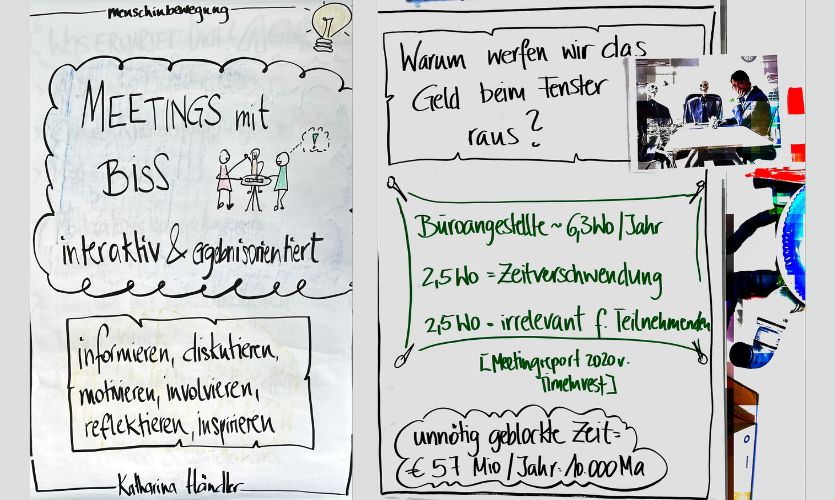 menschinbewegung
MEETINGS mit
BiSS
interaktiv & ergebnisorientiert
informieren, diskutieren,
motivieren, involvieren,
reflektieren, inspirieren
Katharina Händler
Warum werfen wir das
Geld beim Fenster
raus?
Büroangestellte ~ 6,3 Wo/Jahr
2,5 Wo = Zeitverschwendung
2,5 Wo - irrelevant f. Teilnehmenden
[Meetingreport 2020 v.
TimeInvest]
unnötig geblockte Zeit =
€ 57 Mio/Jahr · 10.000 Ma